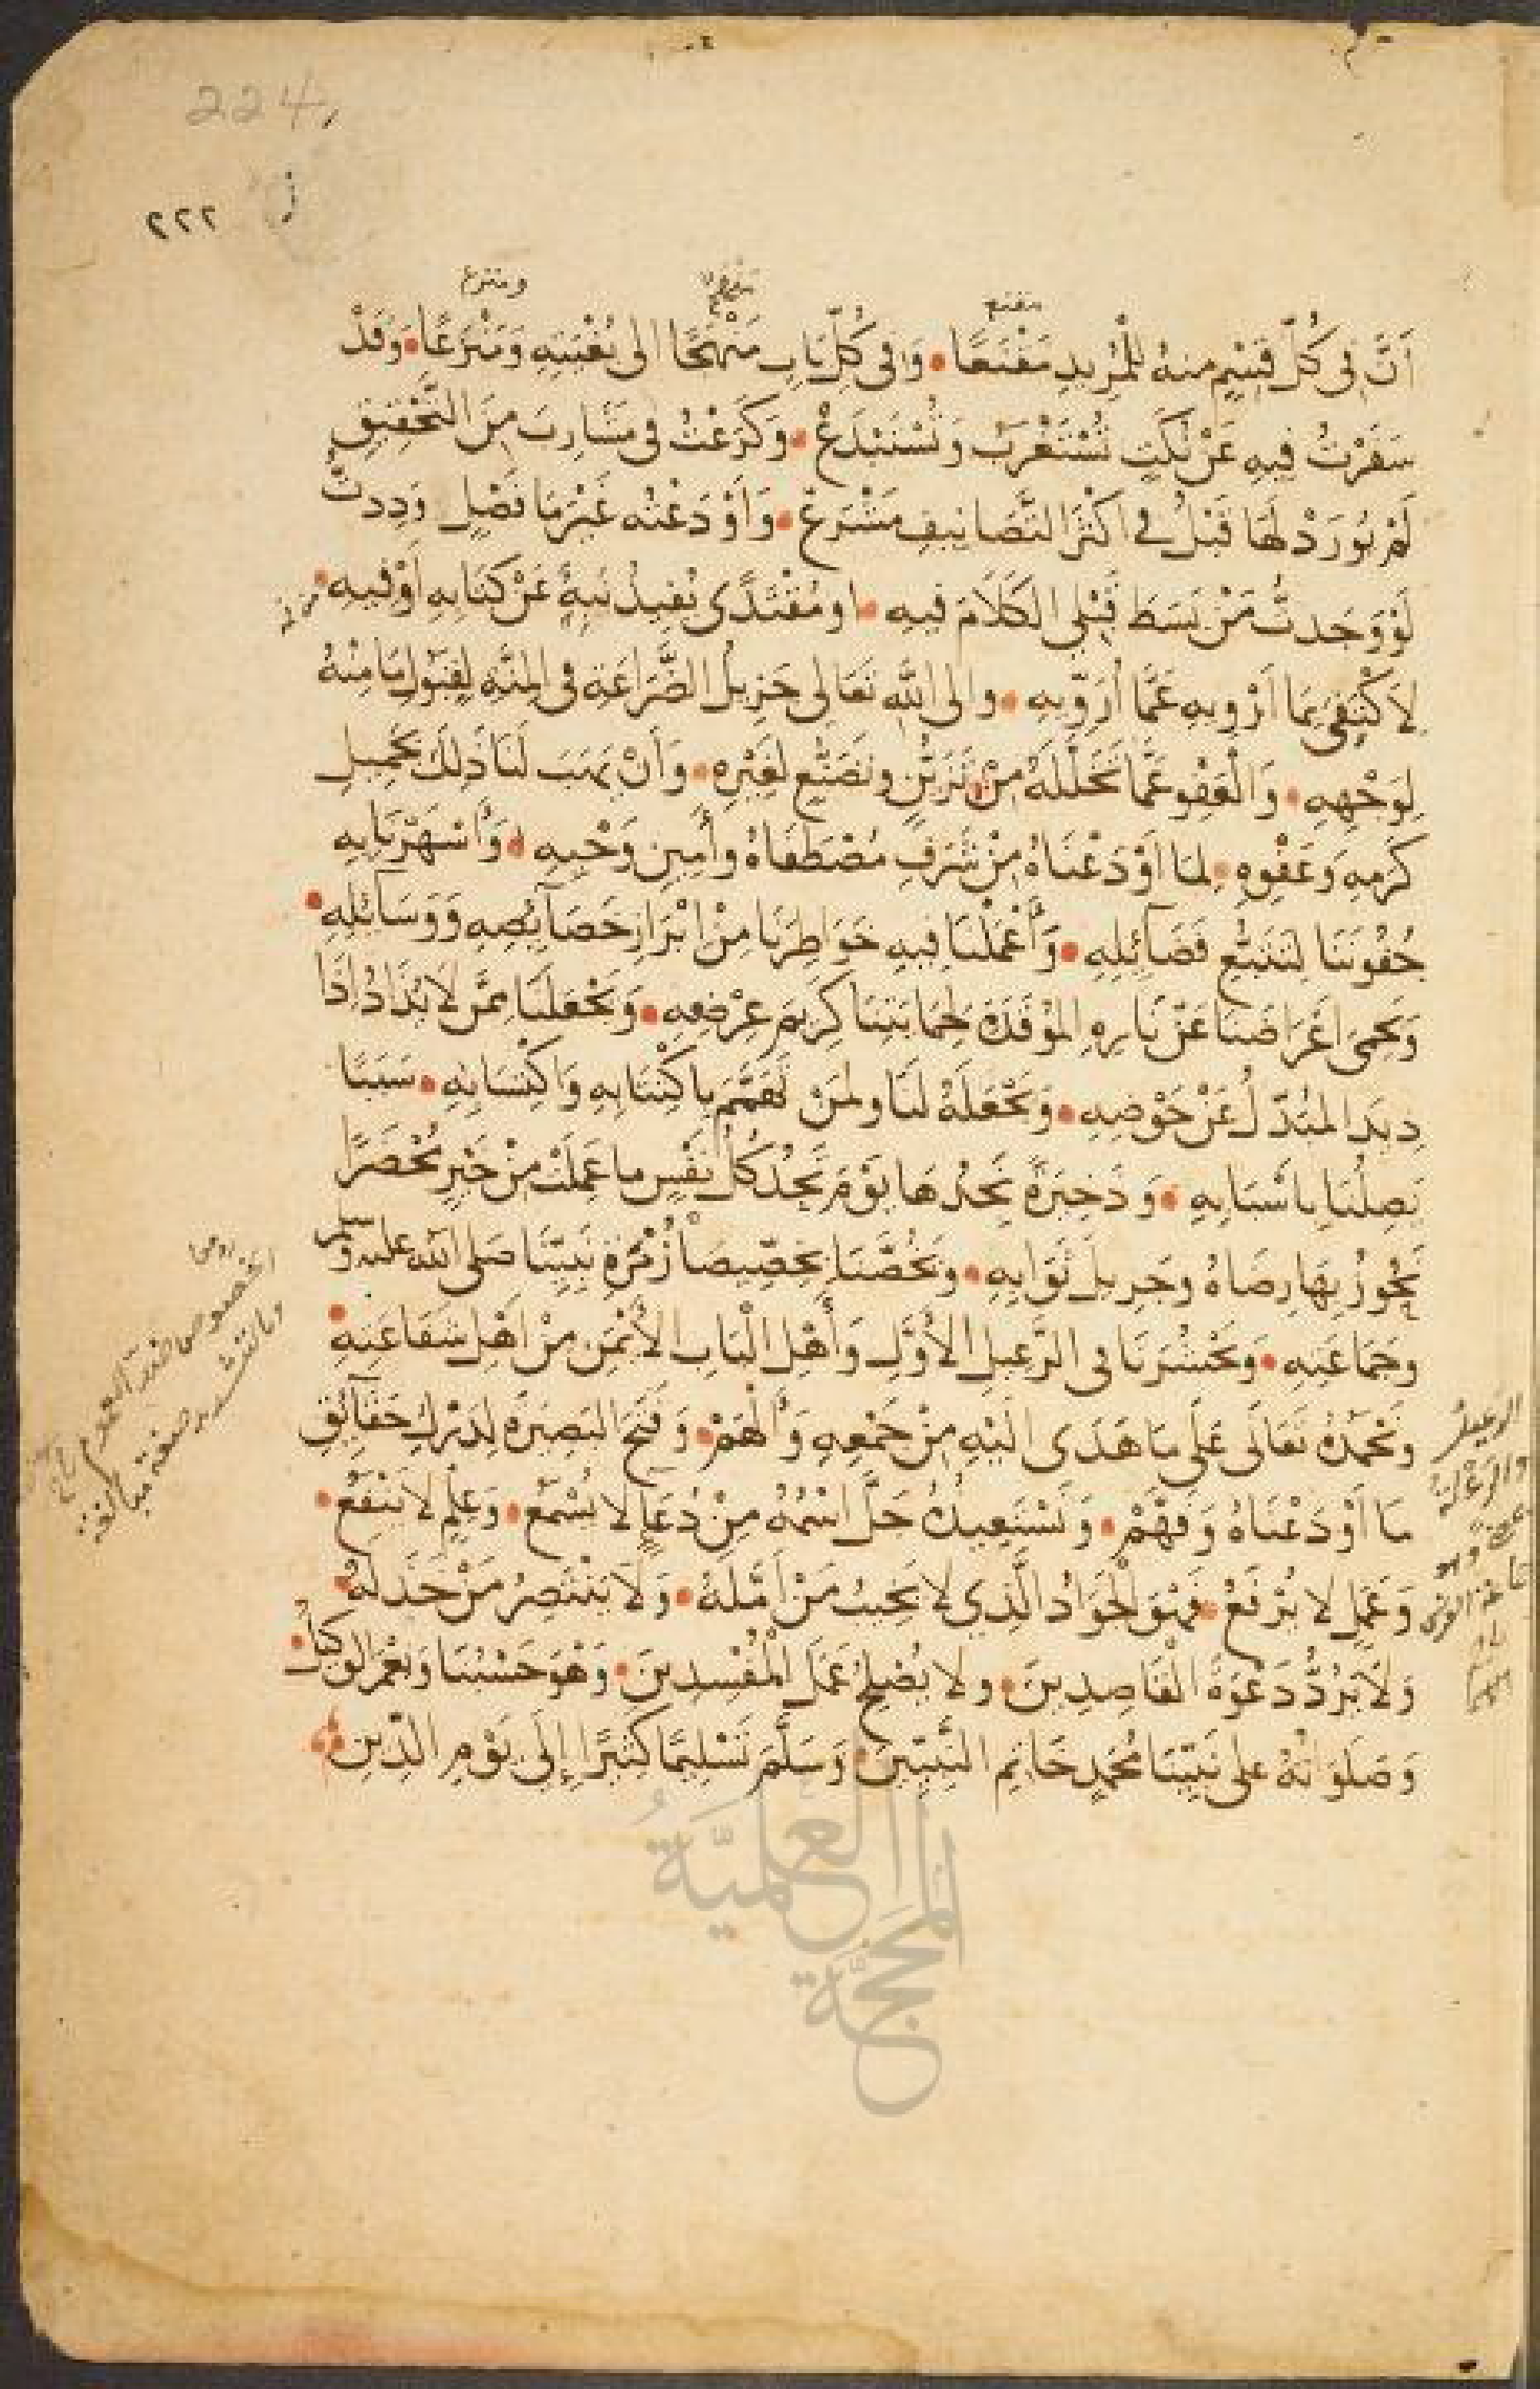 224
٢٢٢
مقنع
ومنزع
أَنَّ فِي كُلِّ قِسْمٍ مِنْهُ لِلْمُرِيدِ مَقْنَعًا وَفِي كُلِّ بَابٍ مَنْهَجًا إلى بُغْيَتِهِ وَمَنْزَعًا وَقَدْ
سَفَرْتُ فِيهِ عَنْ نُكَتٍ تُسْتَغْرَبُ وَتُسْتَبْدَعُ وَكَرَعْتُ فِي مَشَارِبَ مِنَ التَّحْقِيقِ
لَمْ يُورَدْ لَهَا قَبْلُ فِي أكْثَرِ التَّصَانِيفِ مَشْرَعٌ وَأَوْدَعْتُه غَيْرَ مَا فَصْلٍ وَدِدتُّ
لَوْ وَجَدتُّ مَنْ بَسَطَ قَبْلِي الكَلَامَ فِيهِ او مُقْتَدًى يُفِيدُنِيهِ عَنْ كِتَابِهِ أَوْ فِيهِ
لِأَكْتَفِيَ بِمَا أَرْوِيهِ عَمَّا أُرَوِّيهِ والى اللهِ تَعَالى جَزِيلُ الضَّرَاعَةِ فى المِنَّةِ لِقَبُولِ مَا مِنْهُ
لِوَجْهِهِ وَالْعَفْوِ عَمَّا تَخَلَّلَهُ مِنْ تَزَيُّنٍ وَتَصَنُّعٍ لِغَيْرِهِ وَأَنْ يَهَبَ لَنَا ذَلِكَ بِجَمِيلِ
كَرَمِهِ وَعَفْوِهِ لِمَا أَوْدَعْنَاهُ مِنْ شَرَفِ مُصْطَفَاهُ وأَمِينِ وَحْيِهِ وَأَسْهَرْنَا بِهِ
جُفُونَنَا لِتَتَبُّعِ فَضَآئِلِهِ وَأَعْمَلْنَا فِيهِ خَوَاطِرَنَا مِنْ ابْرَازِ خَصَآئِصِهِ وَوَسَآئِلِهِ
وَيَحْمِىَ اعْرَاضَنَا عَنْ نَارِهِ المُوقَدَةِ لِحِمَايَتِنَا كَرِيمَ عِرْضِهِ وَيَجْعَلَنَا مِمَّنْ لَا يُذَادُ إِذَا
ذِيدَ المُبَدِّلُ عَنْ حَوْضِهِ وَيَجْعَلَهُ لَنَا ولِمَنْ تَهَمَّمَ بِاكْتِتَابِهِ وَاكْتِسَابِهِ سَبَبًا
يَصِلُنَا بِاسْبَابِهِ وَذَخِيرَةً نَجِدُهَا يَوْمَ تَجِدُ كُلُّ نَفْسٍ مَا عَمِلَتْ مِنْ خَيْرٍ مُحْضَرًا
نَحُوزُ بِهَا رِضَاهُ وجَزِيلَ ثَوَابِهِ وَيَخُصَّنَا بِخِصِّيصَا زُمْرَةِ نَبِيِّنَا صلى الله عليه وسلم
وجَمَاعَتِهِ وَيَحْشُرَنَا فى الرَّعِيلِ الأَوَّلِ وَأَهْلِ الْبَابِ الأَيْمَنِ مِنْ أَهْلِ شَفَاعَتِهِ
وَنَحْمَدُهُ تَعَالَى عَلَى مَا هَدَى الَيْهِ مِنْ جَمْعِهِ وَأَلْهَمَ وَفَتَحَ البَصِيرَةَ لِدَرْكِ حَقَآئِقِ
مَا أَوْدَعْنَاهُ وَفَهَّمَ وَنَسْتَعِيذُهُ جَلَّ اسْمُهُ مِنْ دُعَاءٍ لا يُسْمَع وَعِلْمٍ لا يَنْفَعُ
وَعَمَلٍ لا يُرْفَعُ فَهُوَ الْجَوَادُ الَّذِي لا يَخِيبُ مَنْ أَمَّلَهُ وَلَا يَنْتَصِرُ مَنْ خَذَلَهُ
وَلَا يَرُدُّ دَعْوَةَ الْقَاصِدِينَ ولا يُصْلِحُ عَمَلَ الْمُفْسِدِينَ وَهْوَ حَسْبُنَا وَنِعْمَ الوَكِيلُ
وَصَلَوَاتُهُ على نَبِيِّنَا مُحَمَّدٍ خَاتِمِ النَّبِيِّينَ وَسَلَّمَ تَسْلِيمًا كَثِيرًا إِلَى يَوْمِ الدِّينِ
الرعيل
والرعلة
المَحَجَّة
العِلْمِيَّةُ